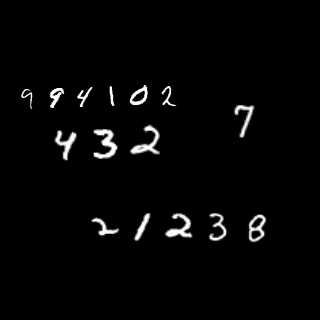 994102
7
432
21238